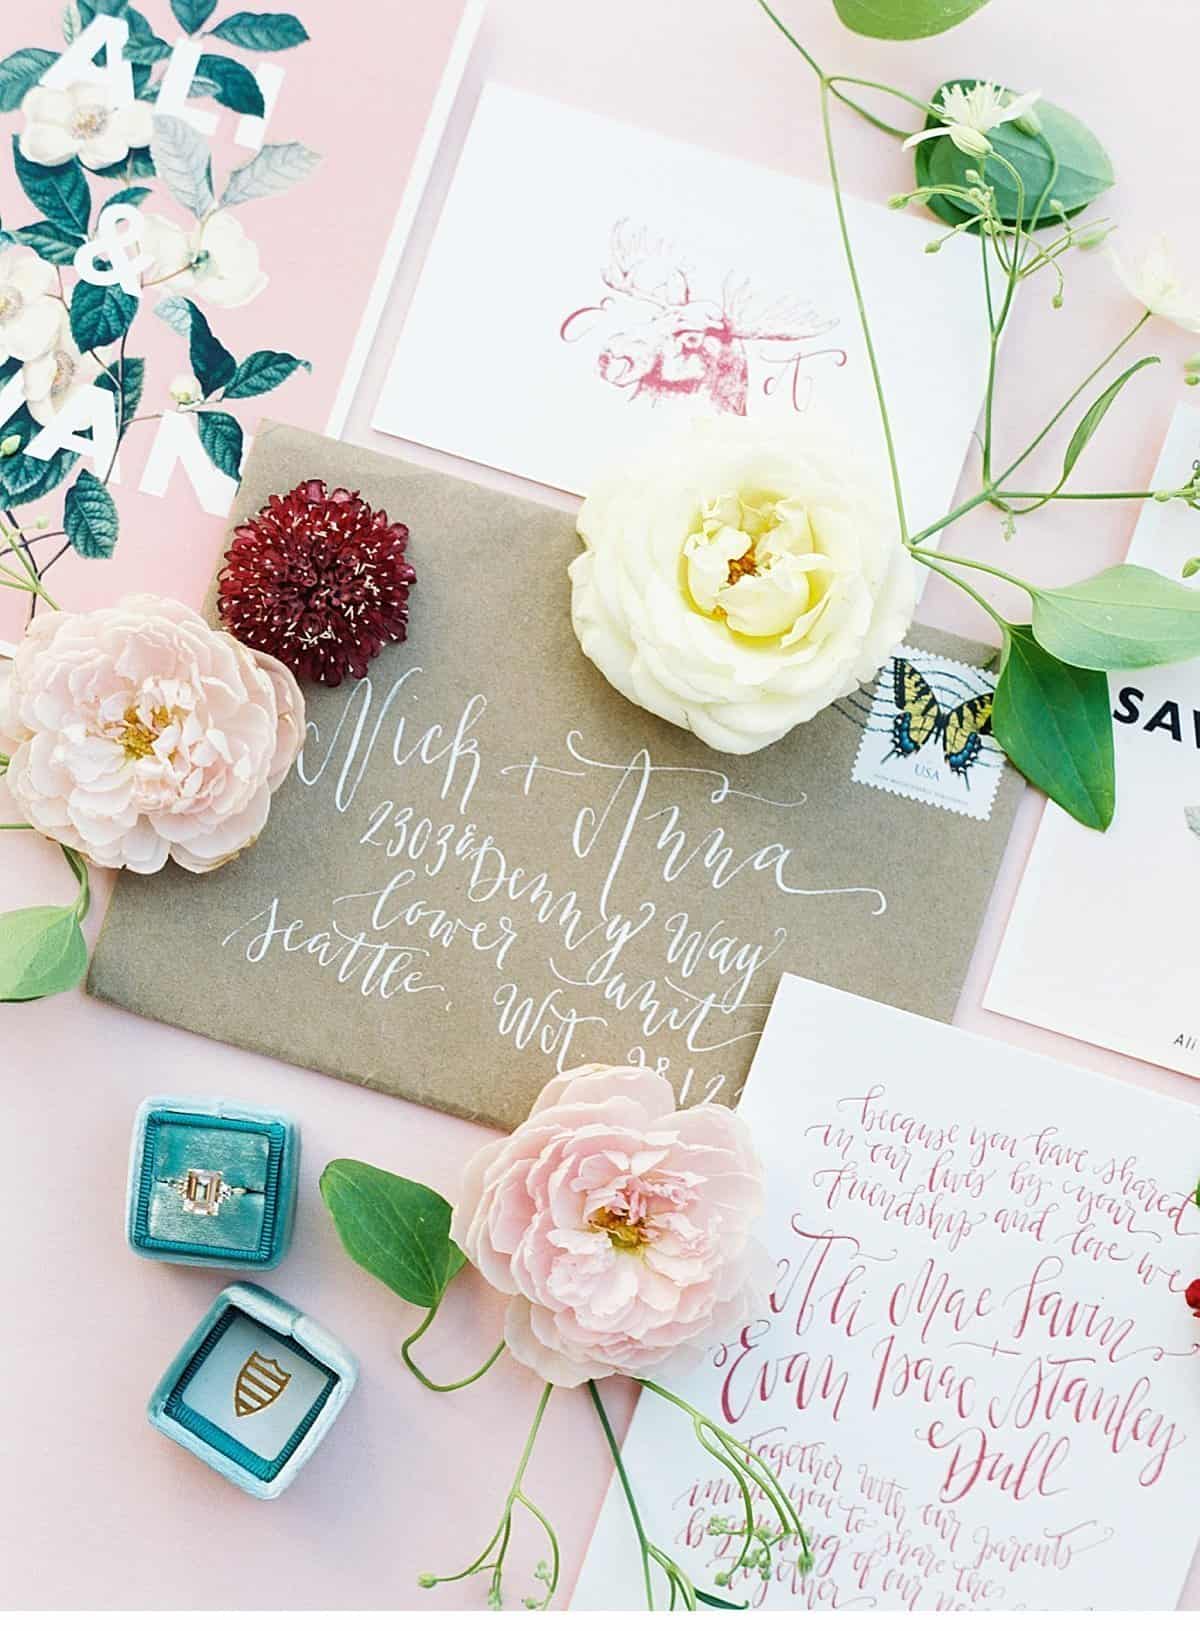 ALI
&
Nick + Anna
2303 E Denny Way
lower unit
Seattle, Wa.
USA
SAV
Ali
because you have shared
in our lives by your
friendship and love we
Ali Mae Savin
+
Evan Isaac Stanley
Dull
together with our parents
invite you to share the
beginning of our new
together